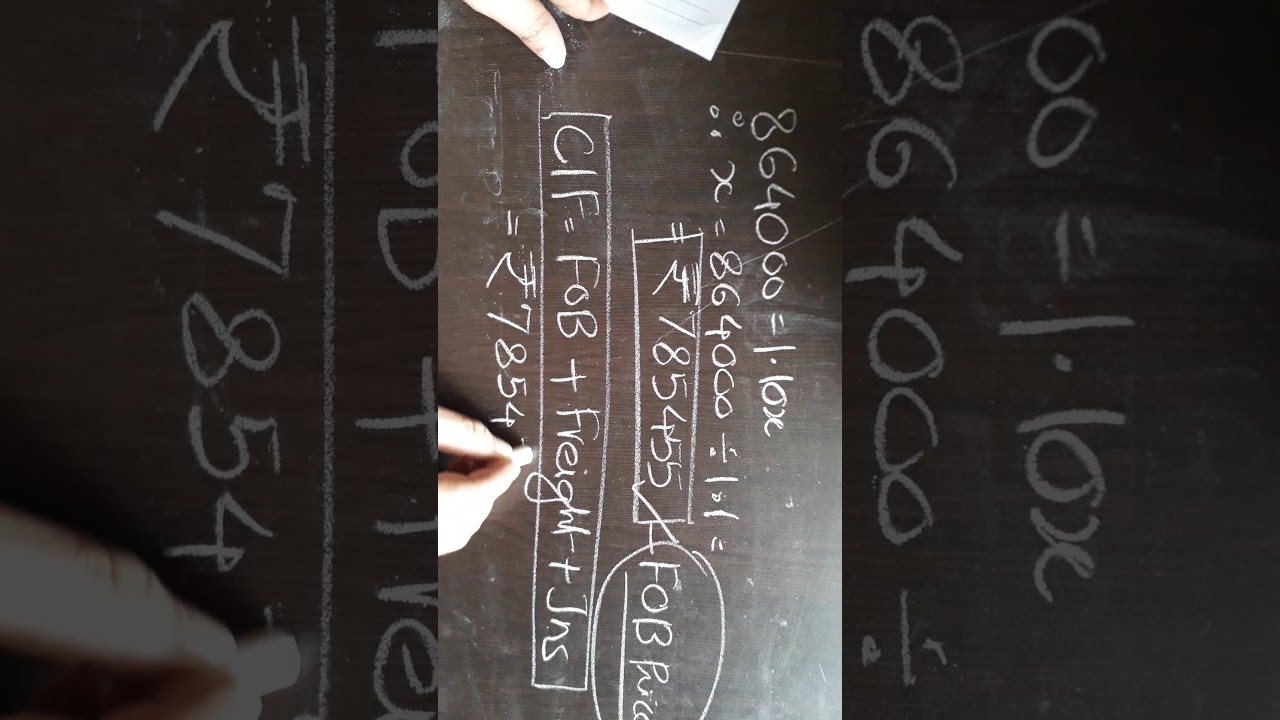 864000 = 1.10x
∴ x = 864000 ÷ 1.1 =
= ₹785455 FOB Pric
CIF = FOB + Freight + Ins
= ₹7854